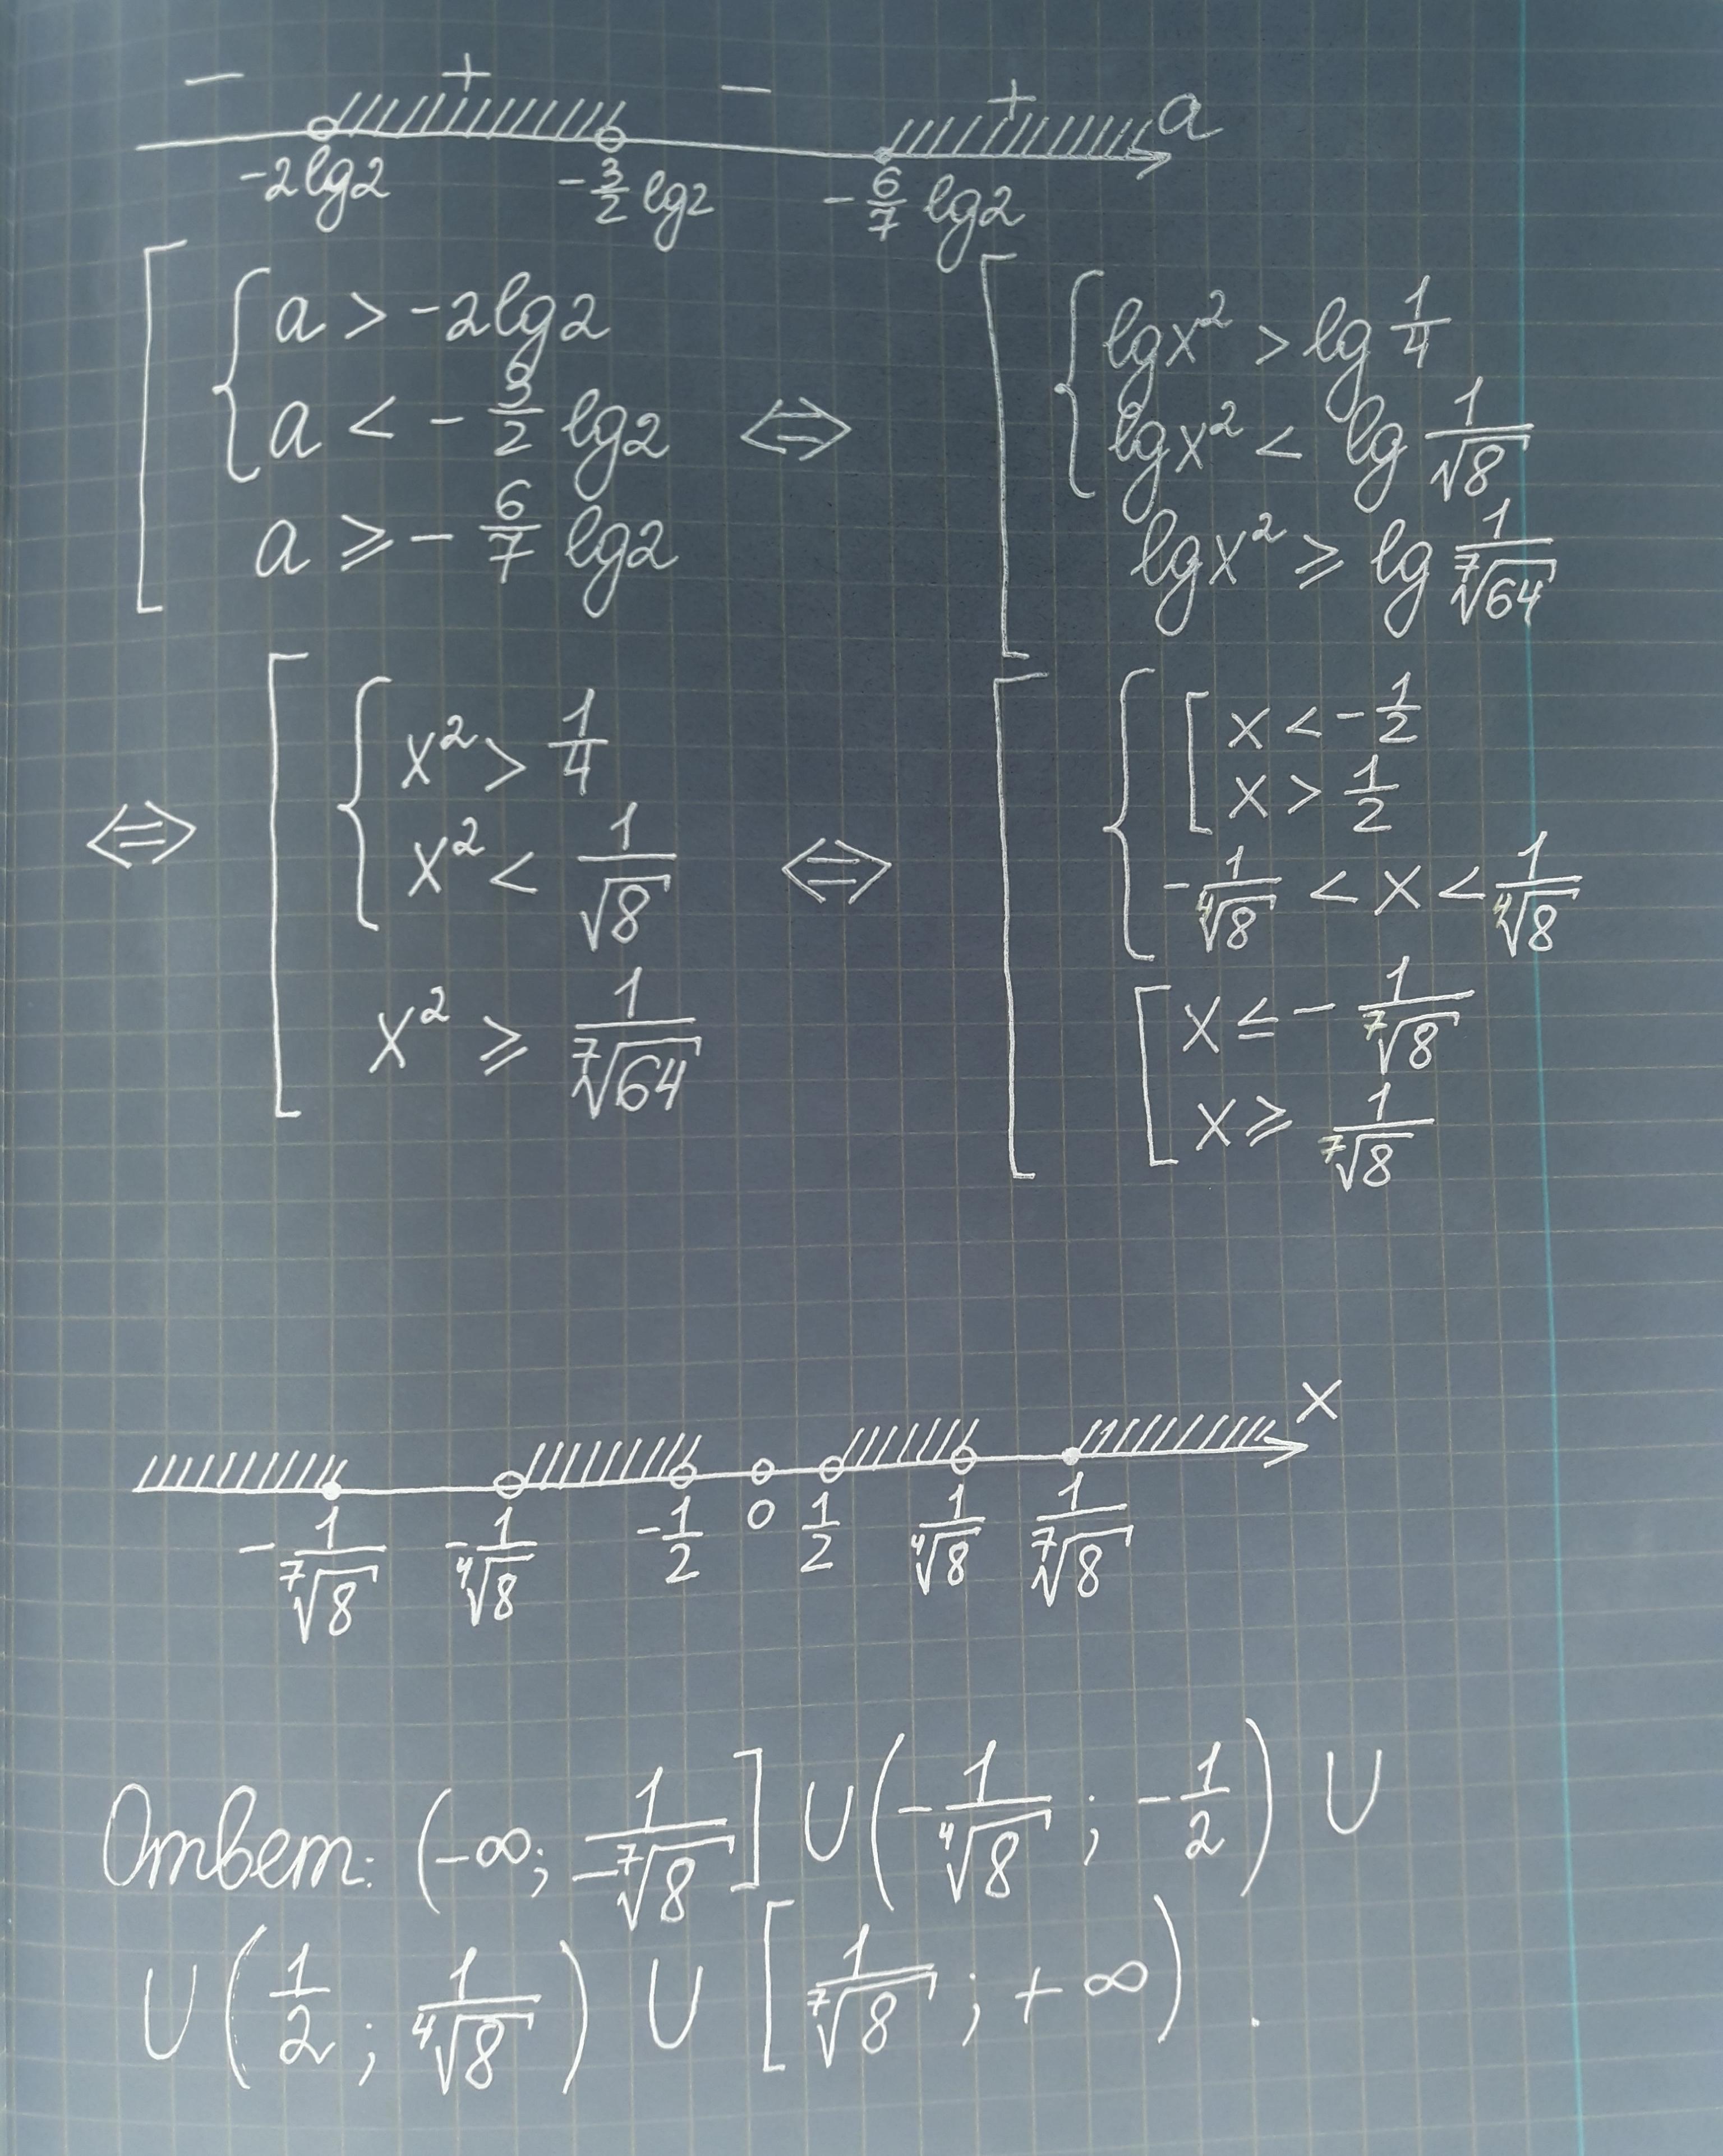 − + − + a
-2lg2 -3/2 lg2 -6/7 lg2
[ { a > -2lg2
a < - 3/2 lg2 ⇔
a ⩾ - 6/7 lg2
[ { lgx² > lg 1/4
lgx² < lg 1/√8
lgx² ⩾ lg 1/⁷√64
⇔ [ { x² > 1/4
x² < 1/√8 ⇔
x² ⩾ 1/⁷√64
[ { [ x < - 1/2
x > 1/2
- 1/⁴√8 < x < 1/⁴√8
[ x ≤ - 1/⁷√8
x ⩾ 1/⁷√8
x
- 1/⁷√8 - 1/⁴√8 - 1/2 0 1/2 1/⁴√8 1/⁷√8
Ответ: (-∞; - 1/⁷√8] ∪ (- 1/⁴√8 ; - 1/2) ∪
∪ (1/2 ; 1/⁴√8) ∪ [1/⁷√8 ; +∞) .